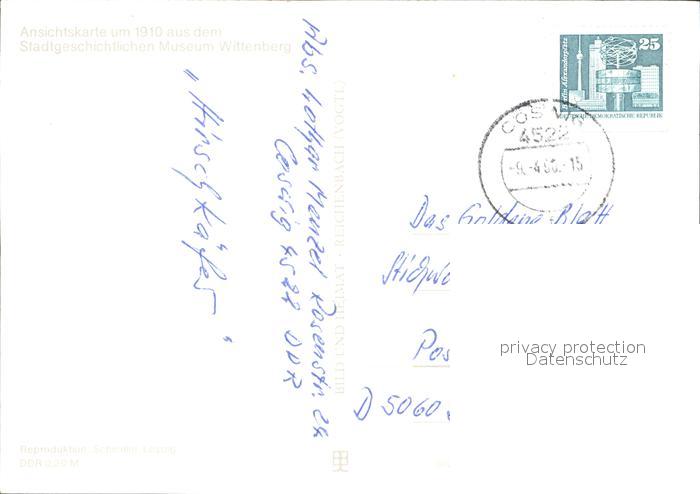 Ansichtskarte um 1910 aus dem
Stadtgeschichtlichen Museum Wittenberg
„Hirschkäfer“
Abs. Lothar Menzel Rosenstr. 24
Coswig 4522 DDR
BILD UND HEIMAT · REICHENBACH (VOGTL)
25
Berlin, Alexanderplatz
DEUTSCHE DEMOKRATISCHE REPUBLIK
COSWIG
4522
-9.-4.86.-15
Das Goldene Blatt
Stichwo
Pos
D 5060
privacy protection
Datenschutz
Reproduktion: Schröter, Leipzig
DDR 0,20 M